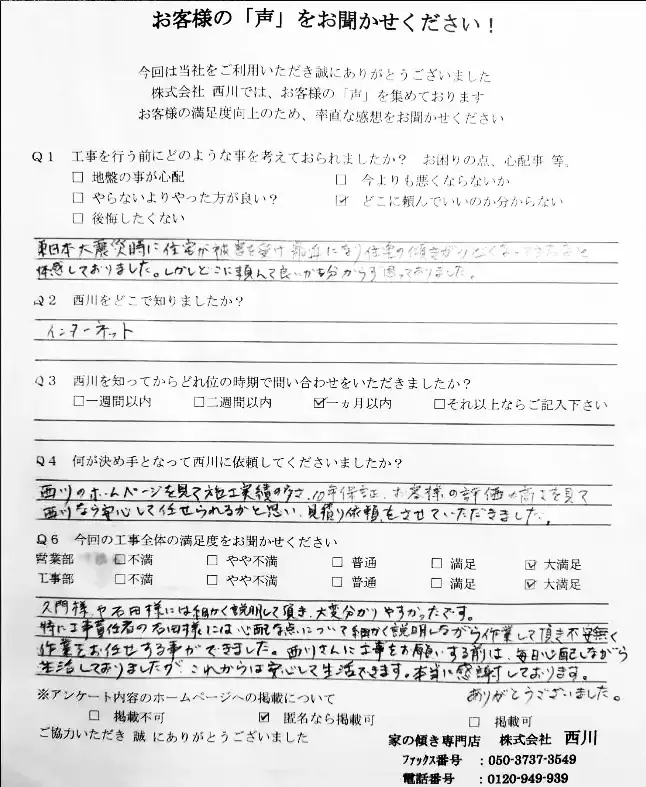 お客様の「声」をお聞かせください！
今回は当社をご利用いただき誠にありがとうございました
株式会社 西川では、お客様の「声」を集めております
お客様の満足度向上のため、率直な感想をお聞かせください
Q1 工事を行う前にどのような事を考えておられましたか？ お困りの点、心配事 等。
□ 地盤の事が心配 □ 今よりも悪くならないか
□ やらないよりやった方が良い？ ☑ どこに頼んでいいのか分からない
□ 後悔したくない
東日本大震災時に住宅が被害を受け 住宅の傾きが
体感しておりました。しかしどこに頼んで良いかも分からず困っておりました。
Q2 西川をどこで知りましたか？
インターネット
Q3 西川を知ってからどれ位の時期で問い合わせをいただきましたか？
□一週間以内 □二週間以内 ☑一ヵ月以内 □それ以上ならご記入下さい
Q4 何が決め手となって西川に依頼してくださいましたか？
西川のホームページを見て施工実績の多さ、10年保証、お客様の評価の高さを見て
西川なら安心して任せられるかと思い、見積り依頼をさせていただきました。
Q6 今回の工事全体の満足度をお聞かせください
営業部 □不満 □ やや不満 □ 普通 □ 満足 ☑ 大満足
工事部 □不満 □ やや不満 □ 普通 □ 満足 ☑ 大満足
久門様や石田様には細かく説明して頂き、大変分かりやすかったです。
特に工事責任者の石田様には心配な点について細かく説明しながら作業して頂き不安無く
作業をお任せする事ができました。西川さんに工事をお願いする前は、毎日心配しながら
生活しておりましたが、これからは安心して生活できます。本当に感謝しております。
ありがとうございました。
※アンケート内容のホームページへの掲載について
□ 掲載不可 ☑ 匿名なら掲載可 □ 掲載可
ご協力いただき 誠 にありがとうございました
家の傾き専門店 株式会社 西川
ﾌｧｯｸｽ番号 ：050-3737-3549
電話番号 ：0120-949-939